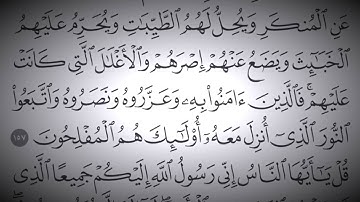 عَنِ ٱلْمُنكَرِ وَيُحِلُّ لَهُمُ ٱلطَّيِّبَٰتِ وَيُحَرِّمُ عَلَيْهِمُ
ٱلْخَبَٰٓئِثَ وَيَضَعُ عَنْهُمْ إِصْرَهُمْ وَٱلْأَغْلَٰلَ ٱلَّتِى كَانَتْ
عَلَيْهِمْ ۚ فَٱلَّذِينَ ءَامَنُوا۟ بِهِۦ وَعَزَّرُوهُ وَنَصَرُوهُ وَٱتَّبَعُوا۟
ٱلنُّورَ ٱلَّذِىٓ أُنزِلَ مَعَهُۥٓ ۙ أُو۟لَٰٓئِكَ هُمُ ٱلْمُفْلِحُونَ ١٥٧
قُلْ يَٰٓأَيُّهَا ٱلنَّاسُ إِنِّى رَسُولُ ٱللَّهِ إِلَيْكُمْ جَمِيعًا ٱلَّذِى